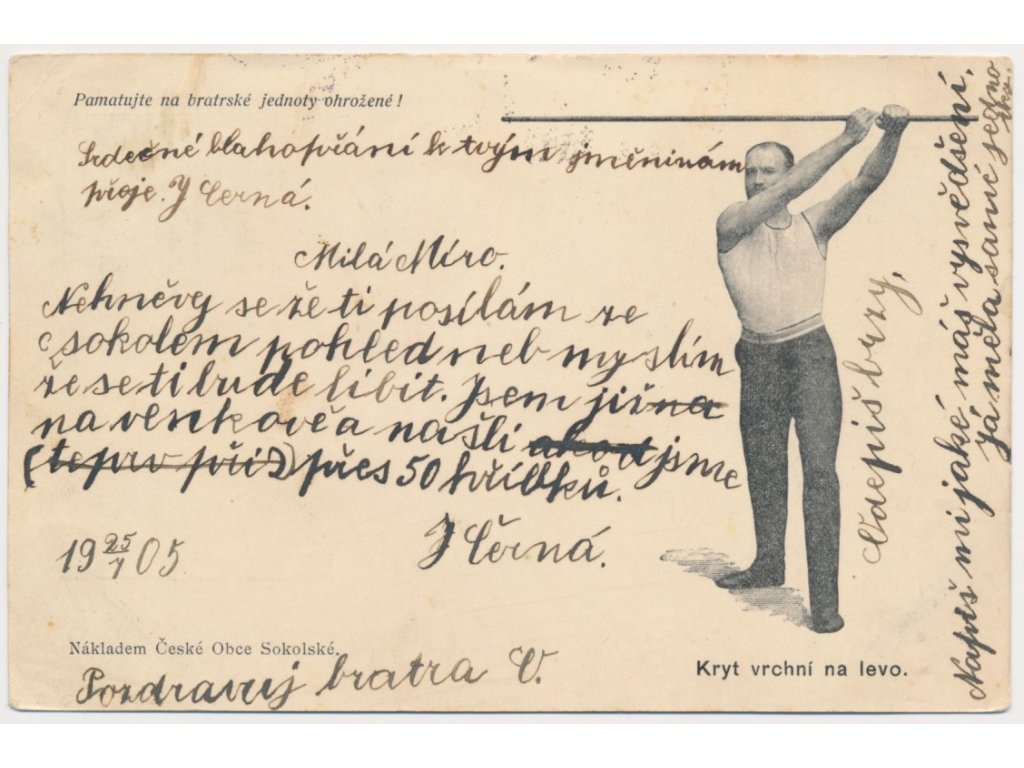 Pamatujte na bratrské jednoty ohrožené!
Srdečné blahopřání k tvým jměninám
přeje. J Černá.
Milá Míro.
Nehněvej se že ti posílám ze
sokolem pohled neb myslím
že se ti bude líbit. Jsem již na
na venkově a našli jsme
(teprv při) přes 50 hříbků.
J Černá.
19 25/7 05
Nákladem České Obce Sokolské.
Pozdravuj bratra V.
Kryt vrchní na levo.
Odepiš brzy.
Napiš mi jaké máš vysvědšení.
já měla samé jedno